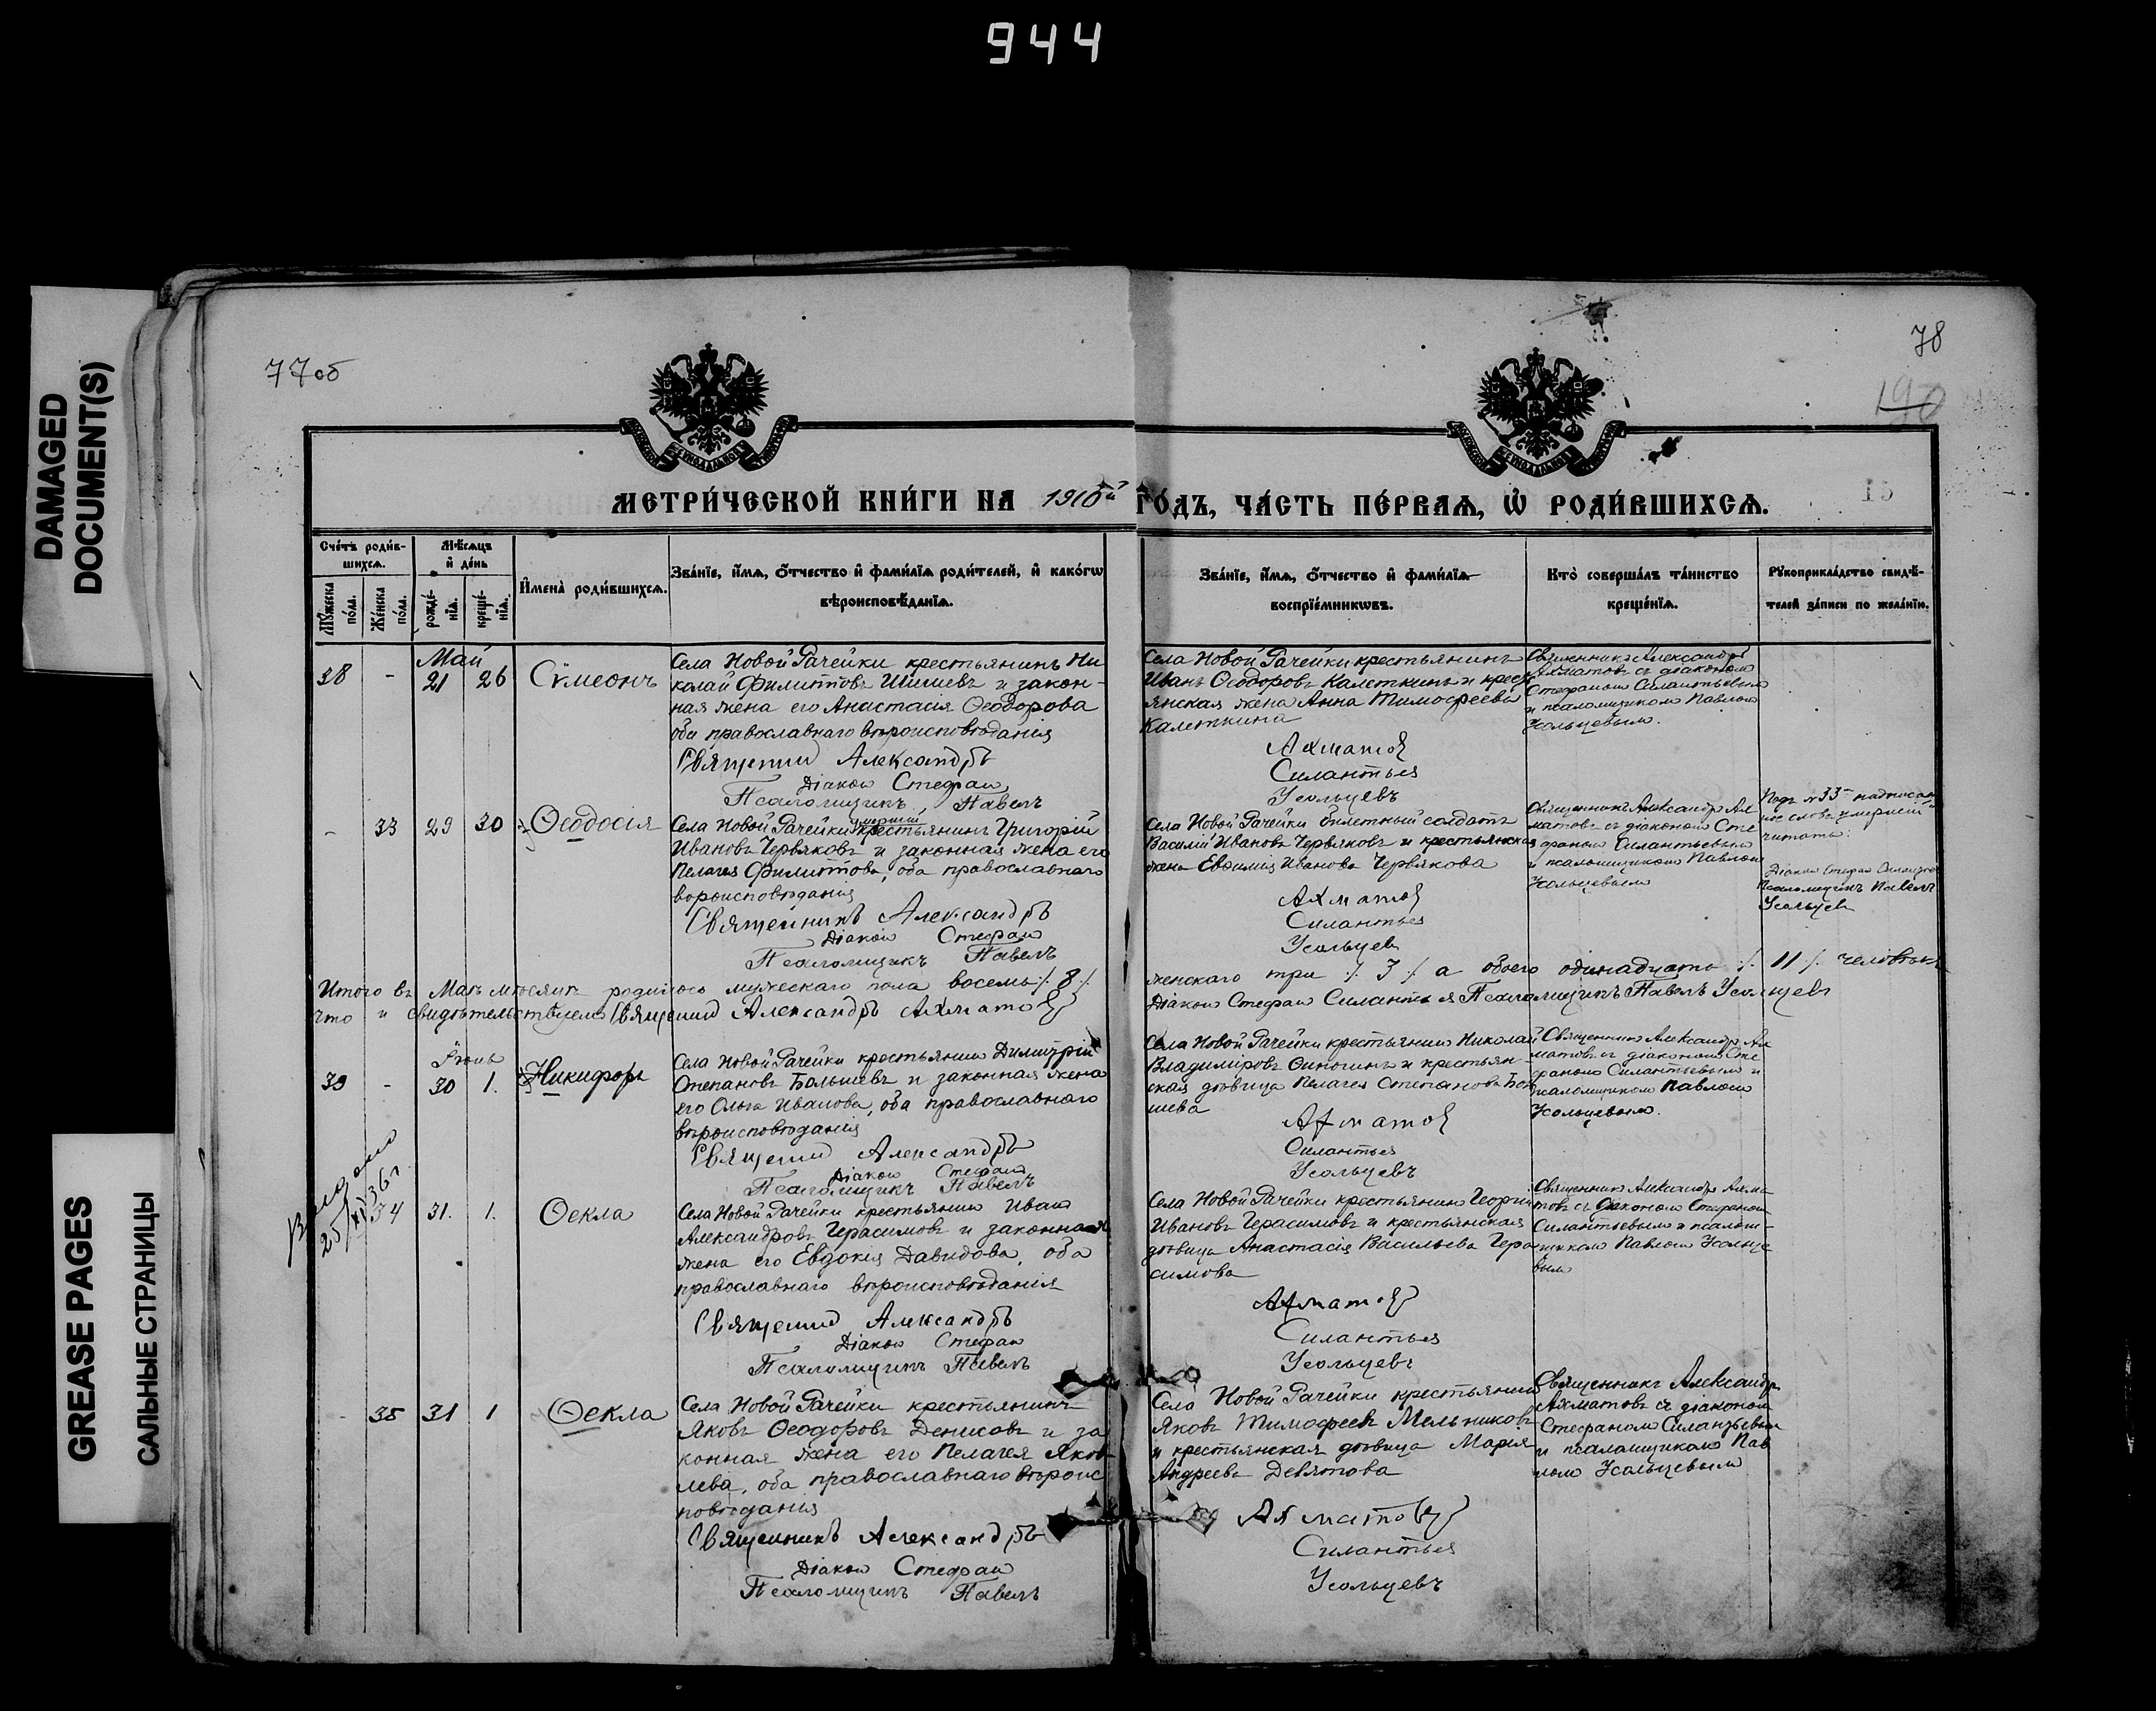 944
DAMAGED
DOCUMENT(S)
GREASE PAGES
САЛЬНЫЕ СТРАНИЦЫ
77об
78
190
МЕТРИ́ЧЕСКОЙ КНИ́ГИ НА 1910й ГО́ДЪ, ЧА́СТЬ ПЕ́РВАѦ, Ѡ҆ РОДИ́ВШИХСѦ.
Сче́тъ роди́в-
шихсѧ.
Мꙋ́жеска
по́ла.
Же́нска
по́ла.
Мѣ́сѧцъ
и҆ де́нь
рожде́-
нїѧ.
креще́-
нїѧ.
И҆мена̀ роди́вшихсѧ.
Зва́нїе, и҆́мѧ, ѻ҆́тчество и҆ фами́лїѧ роди́телей, и҆ како́гѡ
вѣроисповѣ́данїѧ.
Зва́нїе, и҆́мѧ, ѻ҆́тчество и҆ фами́лїѧ
воспрїе́мникѡвъ.
Кто̀ соверша́лъ та́инство
креще́нїѧ.
Рꙋкоприкла́дство свидѣ́-
телей за́писи по жела́нїю.
Май
38 - 21 26 Сѵмеонъ
Села Новой Рачейки крестьянинъ Ни
колай Филипповъ Шишевъ и закон-
ная жена его Анастасія Ѳеодорова
оба православнаго вѣроисповѣданія
Священник Александръ
Діакон Стефан
Псаломщикъ, Павелъ
Села Новой Рачейки крестьянинъ
Иванъ Ѳеодоровъ Калеткинъ и крест
янская жена Анна Тимофеева
Калеткина
Ахматов
Силантьев
Усольцевъ
Священникъ Александръ
Ахматовъ съ діакономъ
Стефаномъ Силантьевымъ
и псаломщикомъ Павломъ
Усольцевымъ.
- 33 29 30 Ѳеодосія
умершій
Села Новой Рачейки крестьянинъ Григорій
Ивановъ Червяковъ и законная жена его
Пелагея Филиппова, оба православнаго
вѣроисповѣданія
Священникъ Александръ
Діакон Стефан
Псаломщикъ Павелъ
Села Новой Рачейки билетный солдатъ
Василій Ивановъ Червяковъ и крестьянская
жена Евфимія Иванова Червякова
Ахматов
Силантьев
Усольцев
Священникъ Александр Ах
матовъ съ діакономъ Сте
фаномъ Силантьевымъ
и псаломщикомъ Павломъ
Усольцевымъ
Подъ №33 надписан
ное слово умершій
читать:
Діакон Стефан Силантьев
Псаломщикъ Павелъ
Усольцев
Итого въ Маѣ мѣсяцѣ родилось мужескаго пола восемь ./. 8 ./. женскаго три ./. 3 ./. а обоего одинадцать ./. 11 ./. человѣкъ
что и свидѣтельствуемъ Священник Александръ Ахматов Діакон Стефан Силантьев Псаломщикъ Павелъ Усольцевъ
Іюнь
39 - 30 1. Никифоръ
Села Новой Рачейки крестьянин Димитрій
Степановъ Болышевъ и законная жена
его Ольга Иванова, оба православнаго
вѣроисповѣданія
Священник Александръ
Діакон Стефан
Псаломщикъ Павелъ
Села Новой Рачейки крестьянин Николай
Владиміровъ и крестьян-
ская дѣвица Пелагея Степанова Бол
шева
Ахматов
Силантьев
Усольцевъ
Священник Александр Ах
матовъ съ діакономъ Сте
фаномъ Силантьевымъ и
псаломщиком Павломъ
Усольцевымъ.
25/XI 36 г
34 31. 1. Ѳекла
Села Новой Рачейки крестьянин Иван
Александровъ Герасимовъ и законная
жена его Евдокія Давидова, оба
православнаго вѣроисповѣданія
Священник Александръ
Діакон Стефан
Псаломщикъ Павелъ
Села Новой Рачейки крестьянин Георгій
Ивановъ Герасимовъ и крестьянская
дѣвица Анастасія Васильева Гера
симова
Ахматов
Силантьев
Усольцевъ
Священникъ Александр Ахма
товъ съ діакономъ Стефаном
Силантьевымъ и псалом-
щикомъ Павломъ Усольце
вымъ
- 35 31 1 Ѳекла
Села Новой Рачейки крестьянинъ
Яковъ Ѳеодоровъ Денисовъ и за
конная жена его Пелагея Яков
лева, оба православнаго вѣроис
повѣданія
Священникъ Александръ
Діакон Стефан
Псаломщикъ Павелъ
Села Новой Рачейки крестьянин
Яковъ Тимофеевъ Мельниковъ
и крестьянская дѣвица Марія
Андреева Девятова
Ахматов
Силантьев
Усольцевъ
Священникъ Александръ
Ахматовъ съ діакономъ
Стефаномъ Силантьевым
и псаломщикомъ Пав
ломъ Усольцевымъ